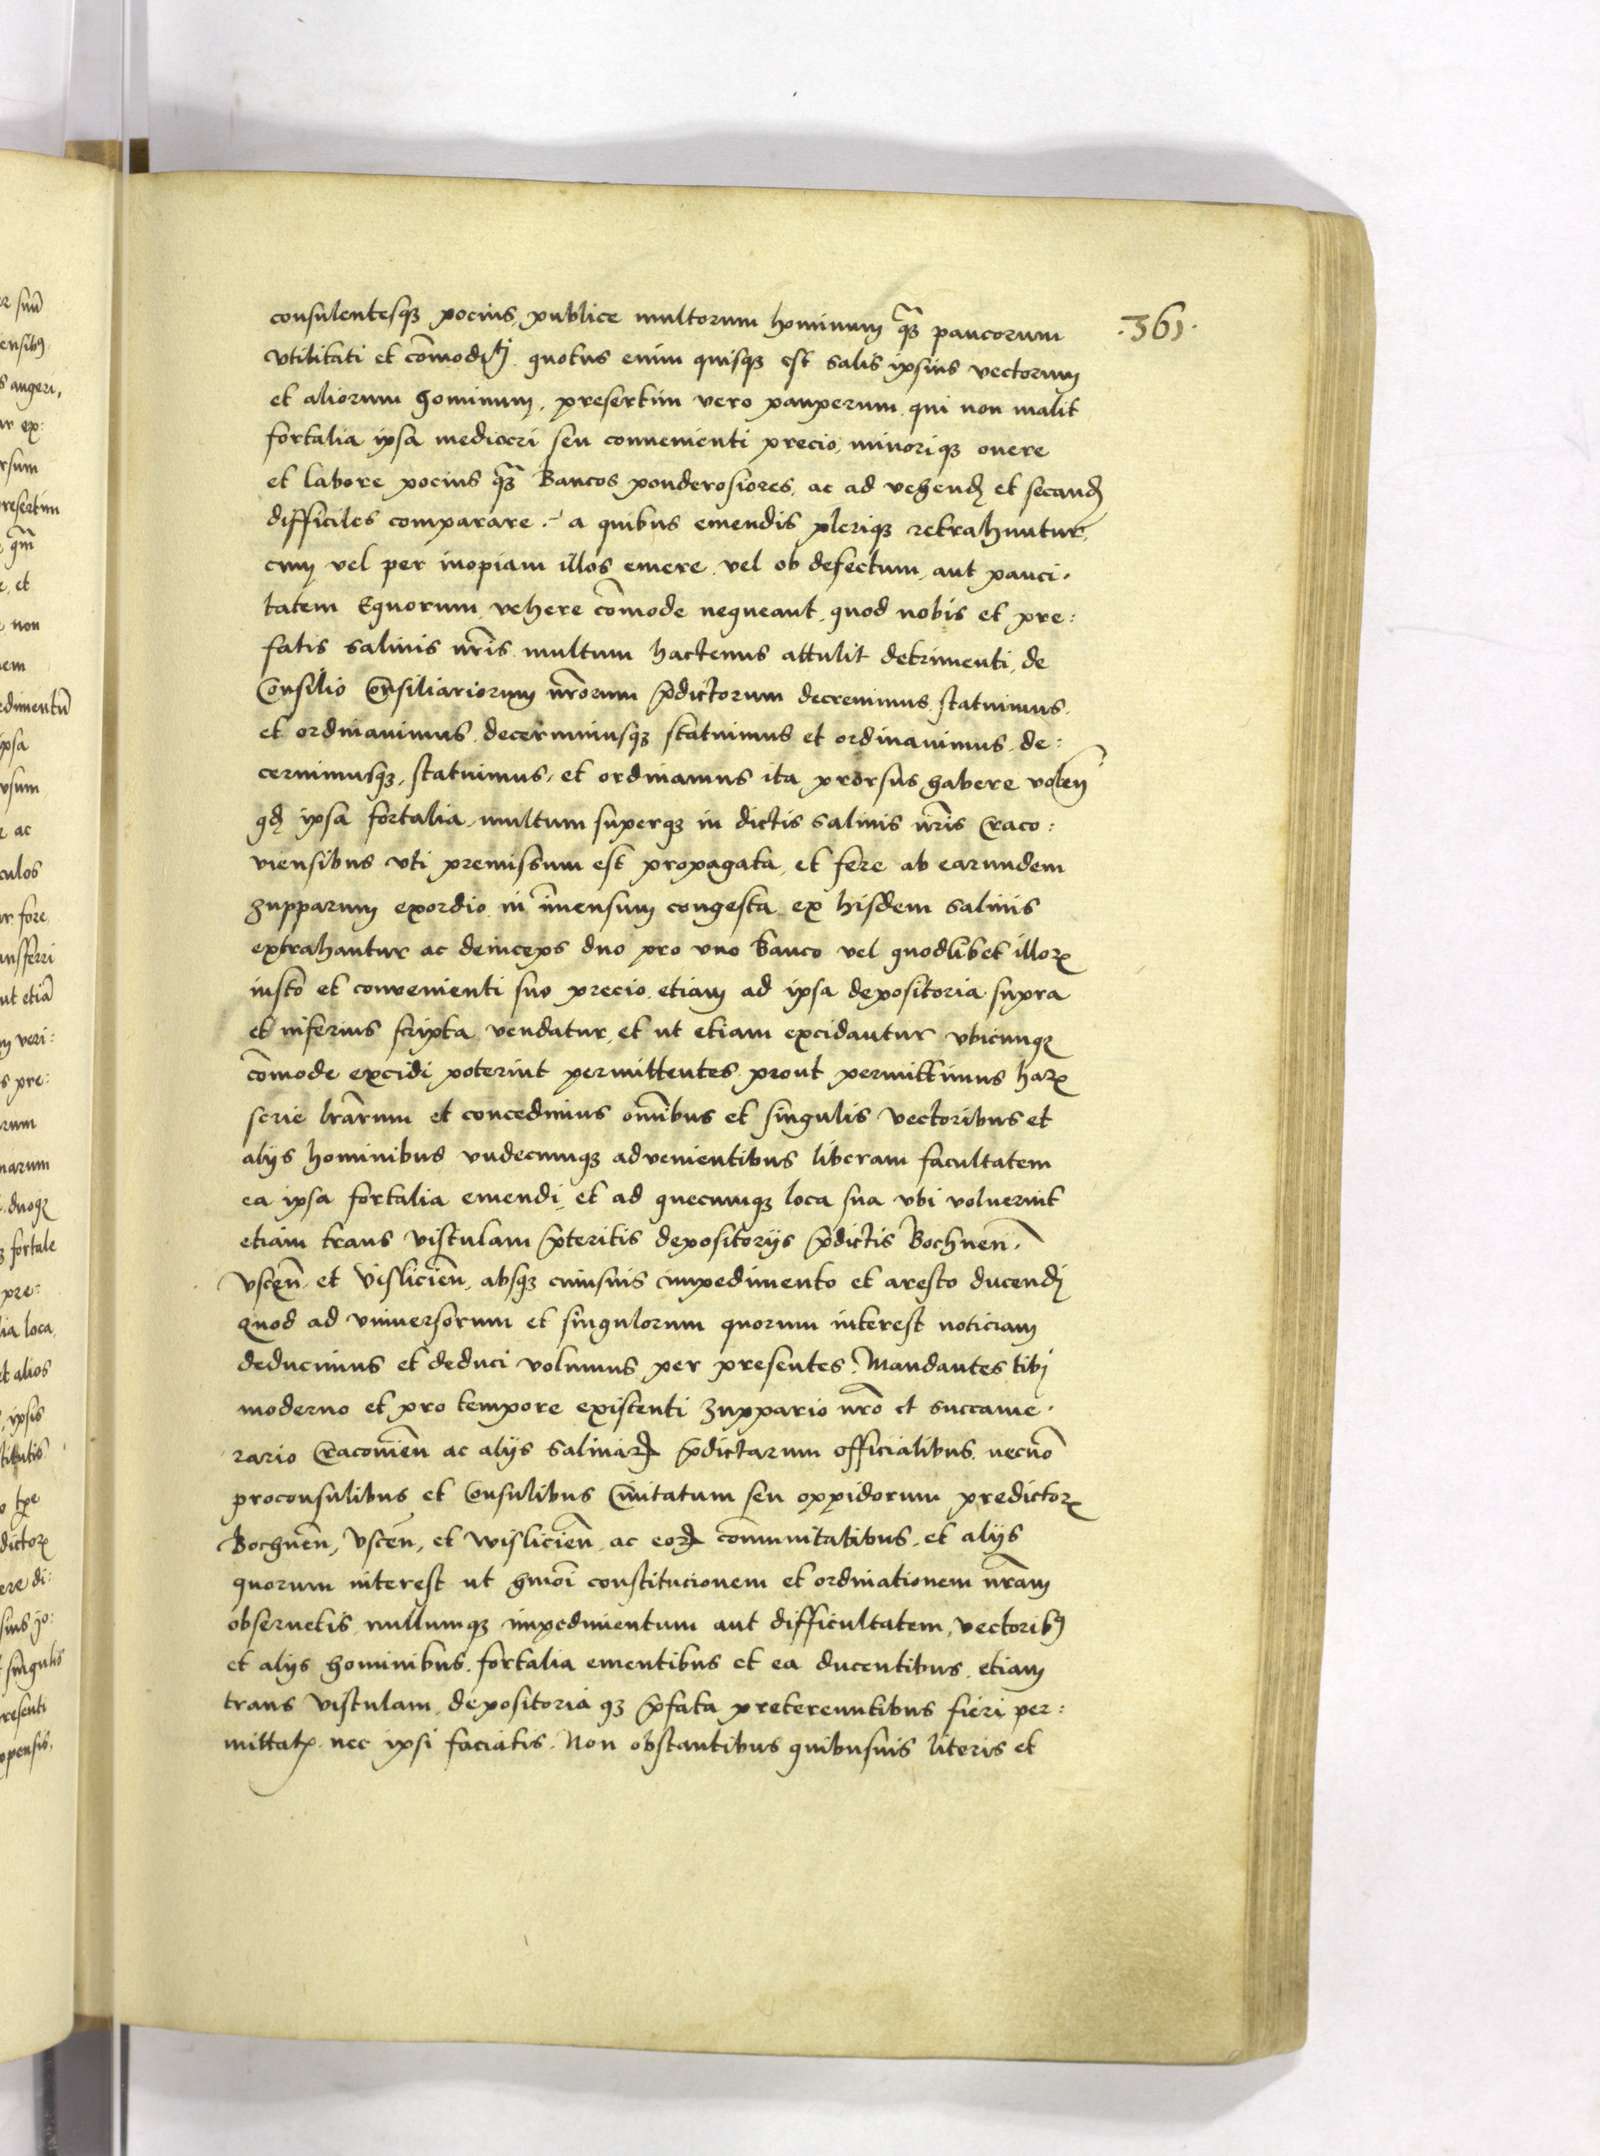 ·361·
consulentesqꝫ pocius, publice multorum hominum q̃ꝫ paucorum
vtilitati et com̃oditi. quotus enim quisqꝫ est salis ipsius vectorum
et aliorum hominum, presertim vero pauperum, qui non malit
fortalia ipsa mediocri seu conuenienti precio, minoriqꝫ onere
et labore pocius q̃ꝫ Bancos ponderosiores, ac ad vehend et secand
difficiles comparare. a quibus emendis pleriqꝫ retrahuntur,
cum vel per inopiam illos emere, vel ob defectum, aut pauci-
tatem Equorum, vehere com̃ode nequeant, quod nobis et pre:
fatis salinis nr̃is multum hactenus attulit detrimenti, de
Consilio Consiliariorum nr̃orum p̃dictorum decreuimus, statuimus,
et ordinauimus, decernimusqꝫ statuimus et ordinauimus, de:
cernimusqꝫ, statuimus, et ordinamus ita prorsus habere volen̄
qđ ipsa fortalia, multum superqꝫ in dictis salinis nr̃is Craco:
uiensibus vti premissum est propagata, et fere ab earundem
zupparum exordio in im̃ensum congesta ex hisdem salinis
extrahantur ac deinceps duo pro vno Banco vel quodlibet illoꝝ
iusto et conuenienti suo precio, etiam ad ipsa depositoria supra
et inferius scripta vendatur, et ut etiam excidantur vbicunqꝫ
com̃ode excidi poterint permittentes prout permittimus haꝝ
serie lr̃arum et concedimus om̃ibus et singulis vectoribus et
alijs hominibus vndecumqꝫ aduenientibus liberam facultatem
ea ipsa fortalia emendi, et ad quecumqꝫ loca sua vbi voluerint
etiam trans vistulam p̃teritis depositorijs p̃dictis Bochnen̄,
Vscen̄, et Vislicien̄, absqꝫ cuiusuis impedimento et aresto ducendi
Quod ad vniuersorum et singulorum quorum interest noticiam
deducimus et deduci volumus per presentes. Mandantes tibi
moderno et pro tempore existenti zuppario nr̃o et succame-
rario Cracouien̄ ac alijs salinaꝝ p̃dictarum officialibus, necnō
proconsulibus et Consulibus Ciuitatum seu oppidorum predictoꝝ
Bochnen̄, Vscen̄, et wislicien̄, ac eoꝝ com̃unitatibus, et alijs
quorum interest ut hmōi constitucionem et ordinationem nr̃am
obseruetis, nullumqꝫ impedimentum aut difficultatem, vectoribꝫ
et alijs hominibus, fortalia ementibus et ea ducentibus, etiam
trans vistulam, depositoria qꝫ p̃fata pretereuntibus fieri per:
mittatꝭ nec ipsi faciatis. Non obstantibus quibusuis literis et